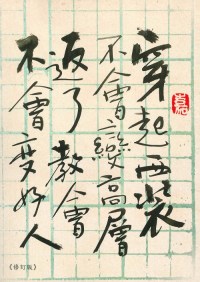 穿起西裝
不會變高層
返了教會
不會變好人
《修訂版》